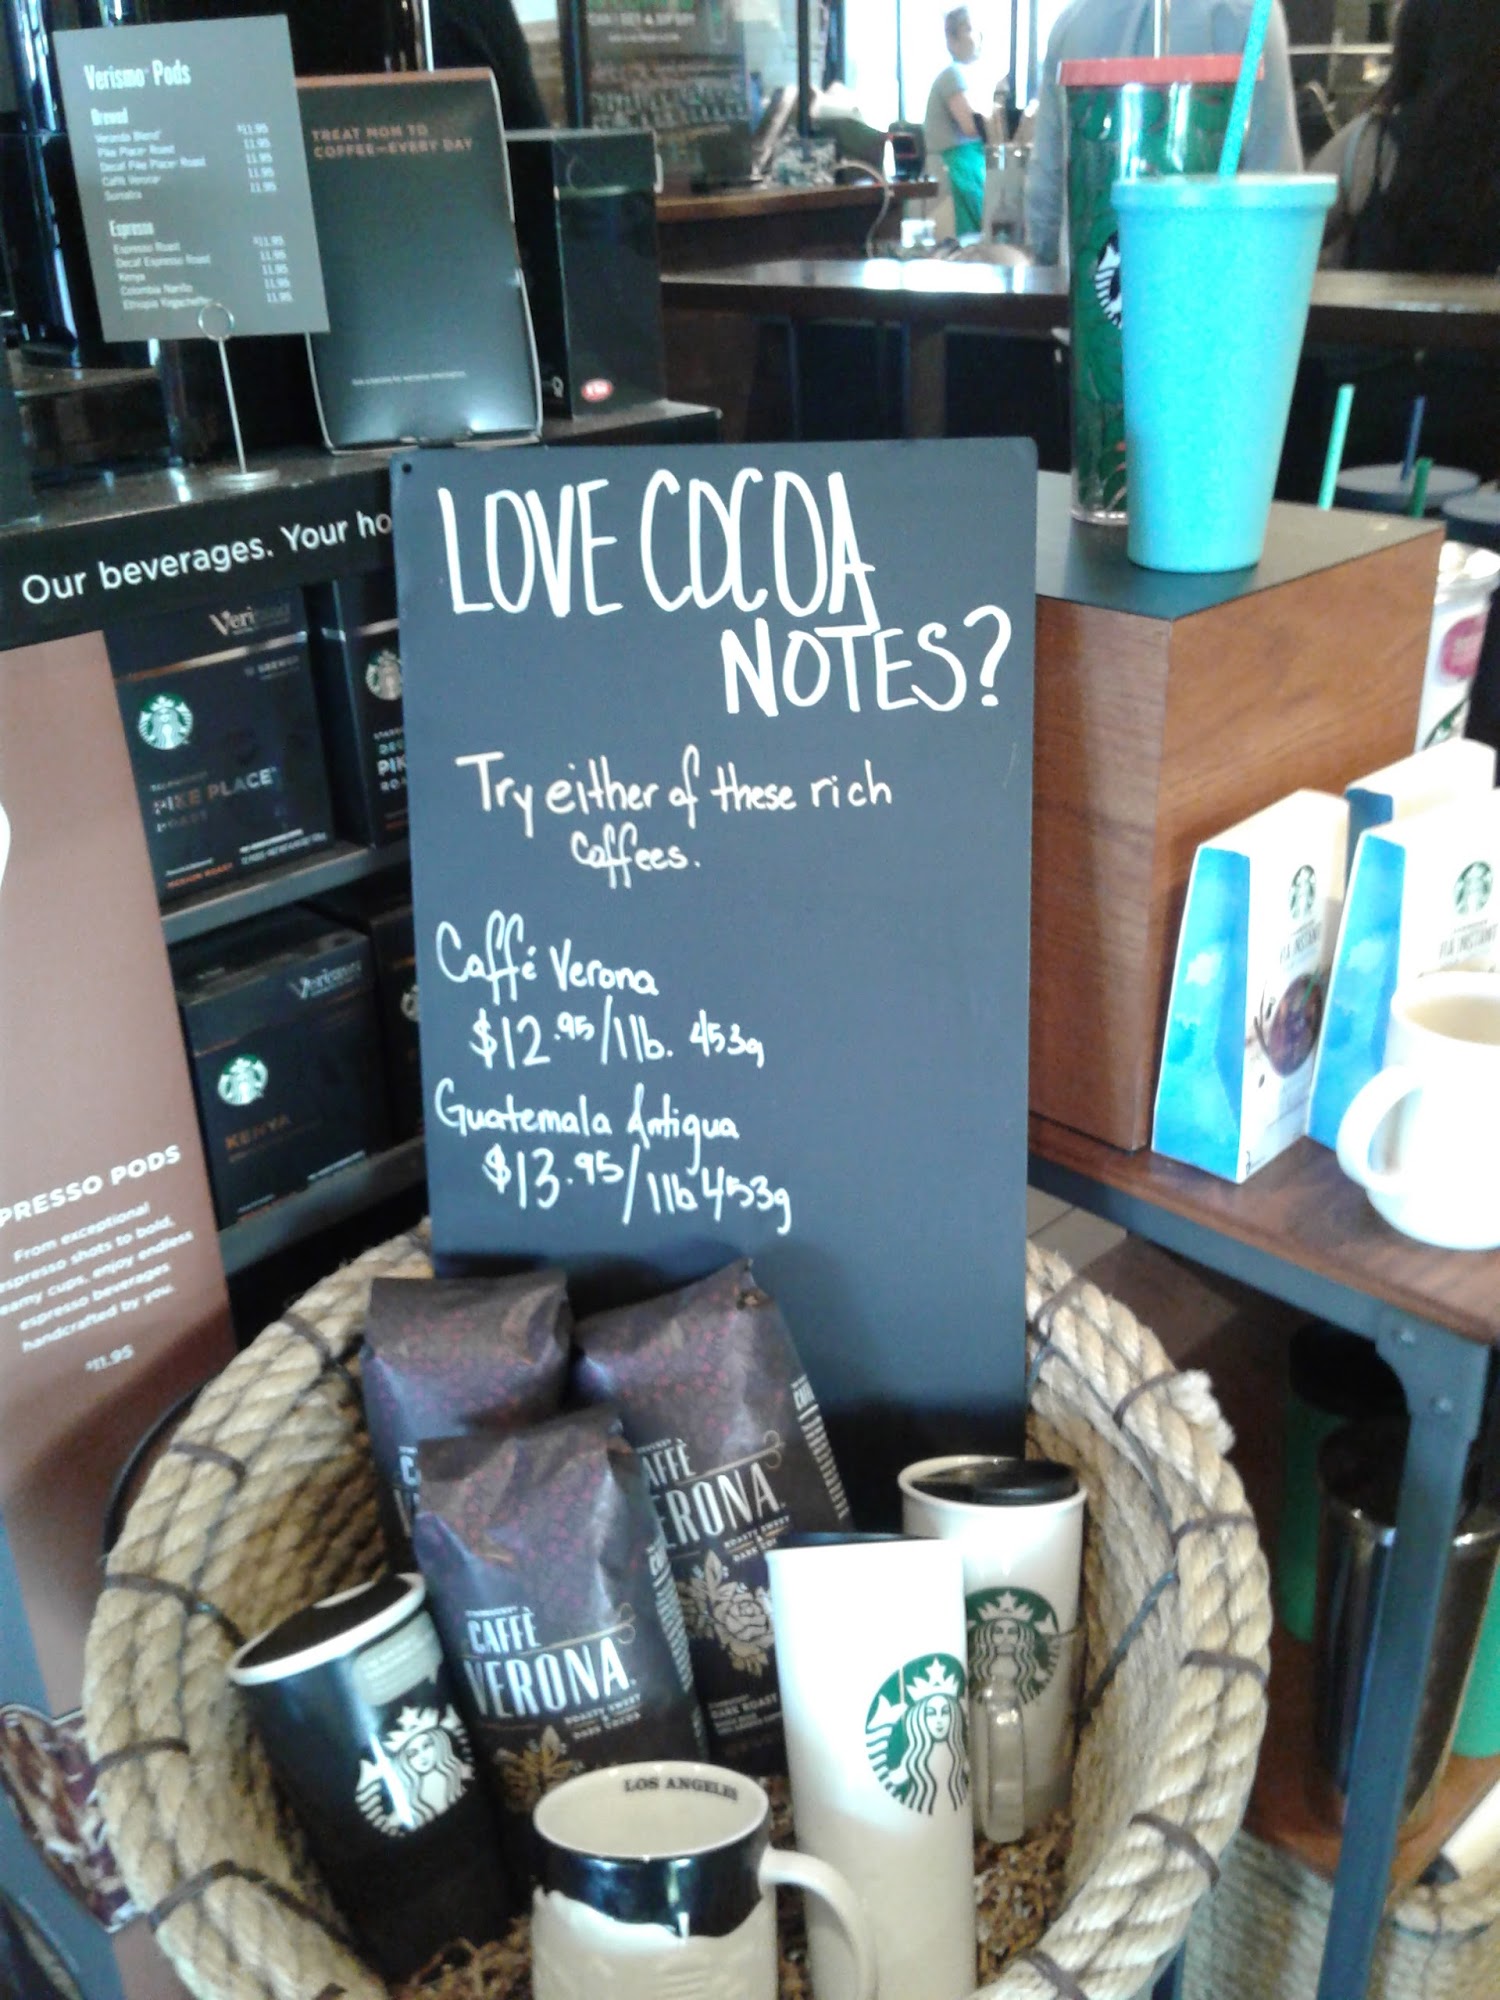 Verismo™ Pods
Brewed
Veranda Blend® $11.95
Pike Place® Roast 11.95
Decaf Pike Place® Roast 11.95
Caffè Verona® 11.95
Sumatra 11.95
Espresso
Espresso Roast $11.95
Decaf Espresso Roast 11.95
Kenya 11.95
Colombia Nariño 11.95
Ethiopia 11.95
TREAT MOM TO
COFFEE—EVERY DAY
Our beverages. Your ho
LOVE COCOA
NOTES?
Try either of these rich
coffees.
Caffé Verona
$12.95/1lb. 453g
Guatemala Antigua
$13.95/1lb 453g
Verismo
PIKE PLACE®
ROAST
MEDIUM ROAST
PIK
Verismo
KENYA
PRESSO PODS
From exceptional
espresso shots to bold,
eamy cups, enjoy endless
espresso beverages
handcrafted by you.
$11.95
VIA INSTANT
VIA INSTANT
AFFÈ
ERONA®
ROASTY SWEET
DARK ROAST
CAFFÈ
VERONA®
ROASTY SWEET
DARK COCOA
LOS ANGELES